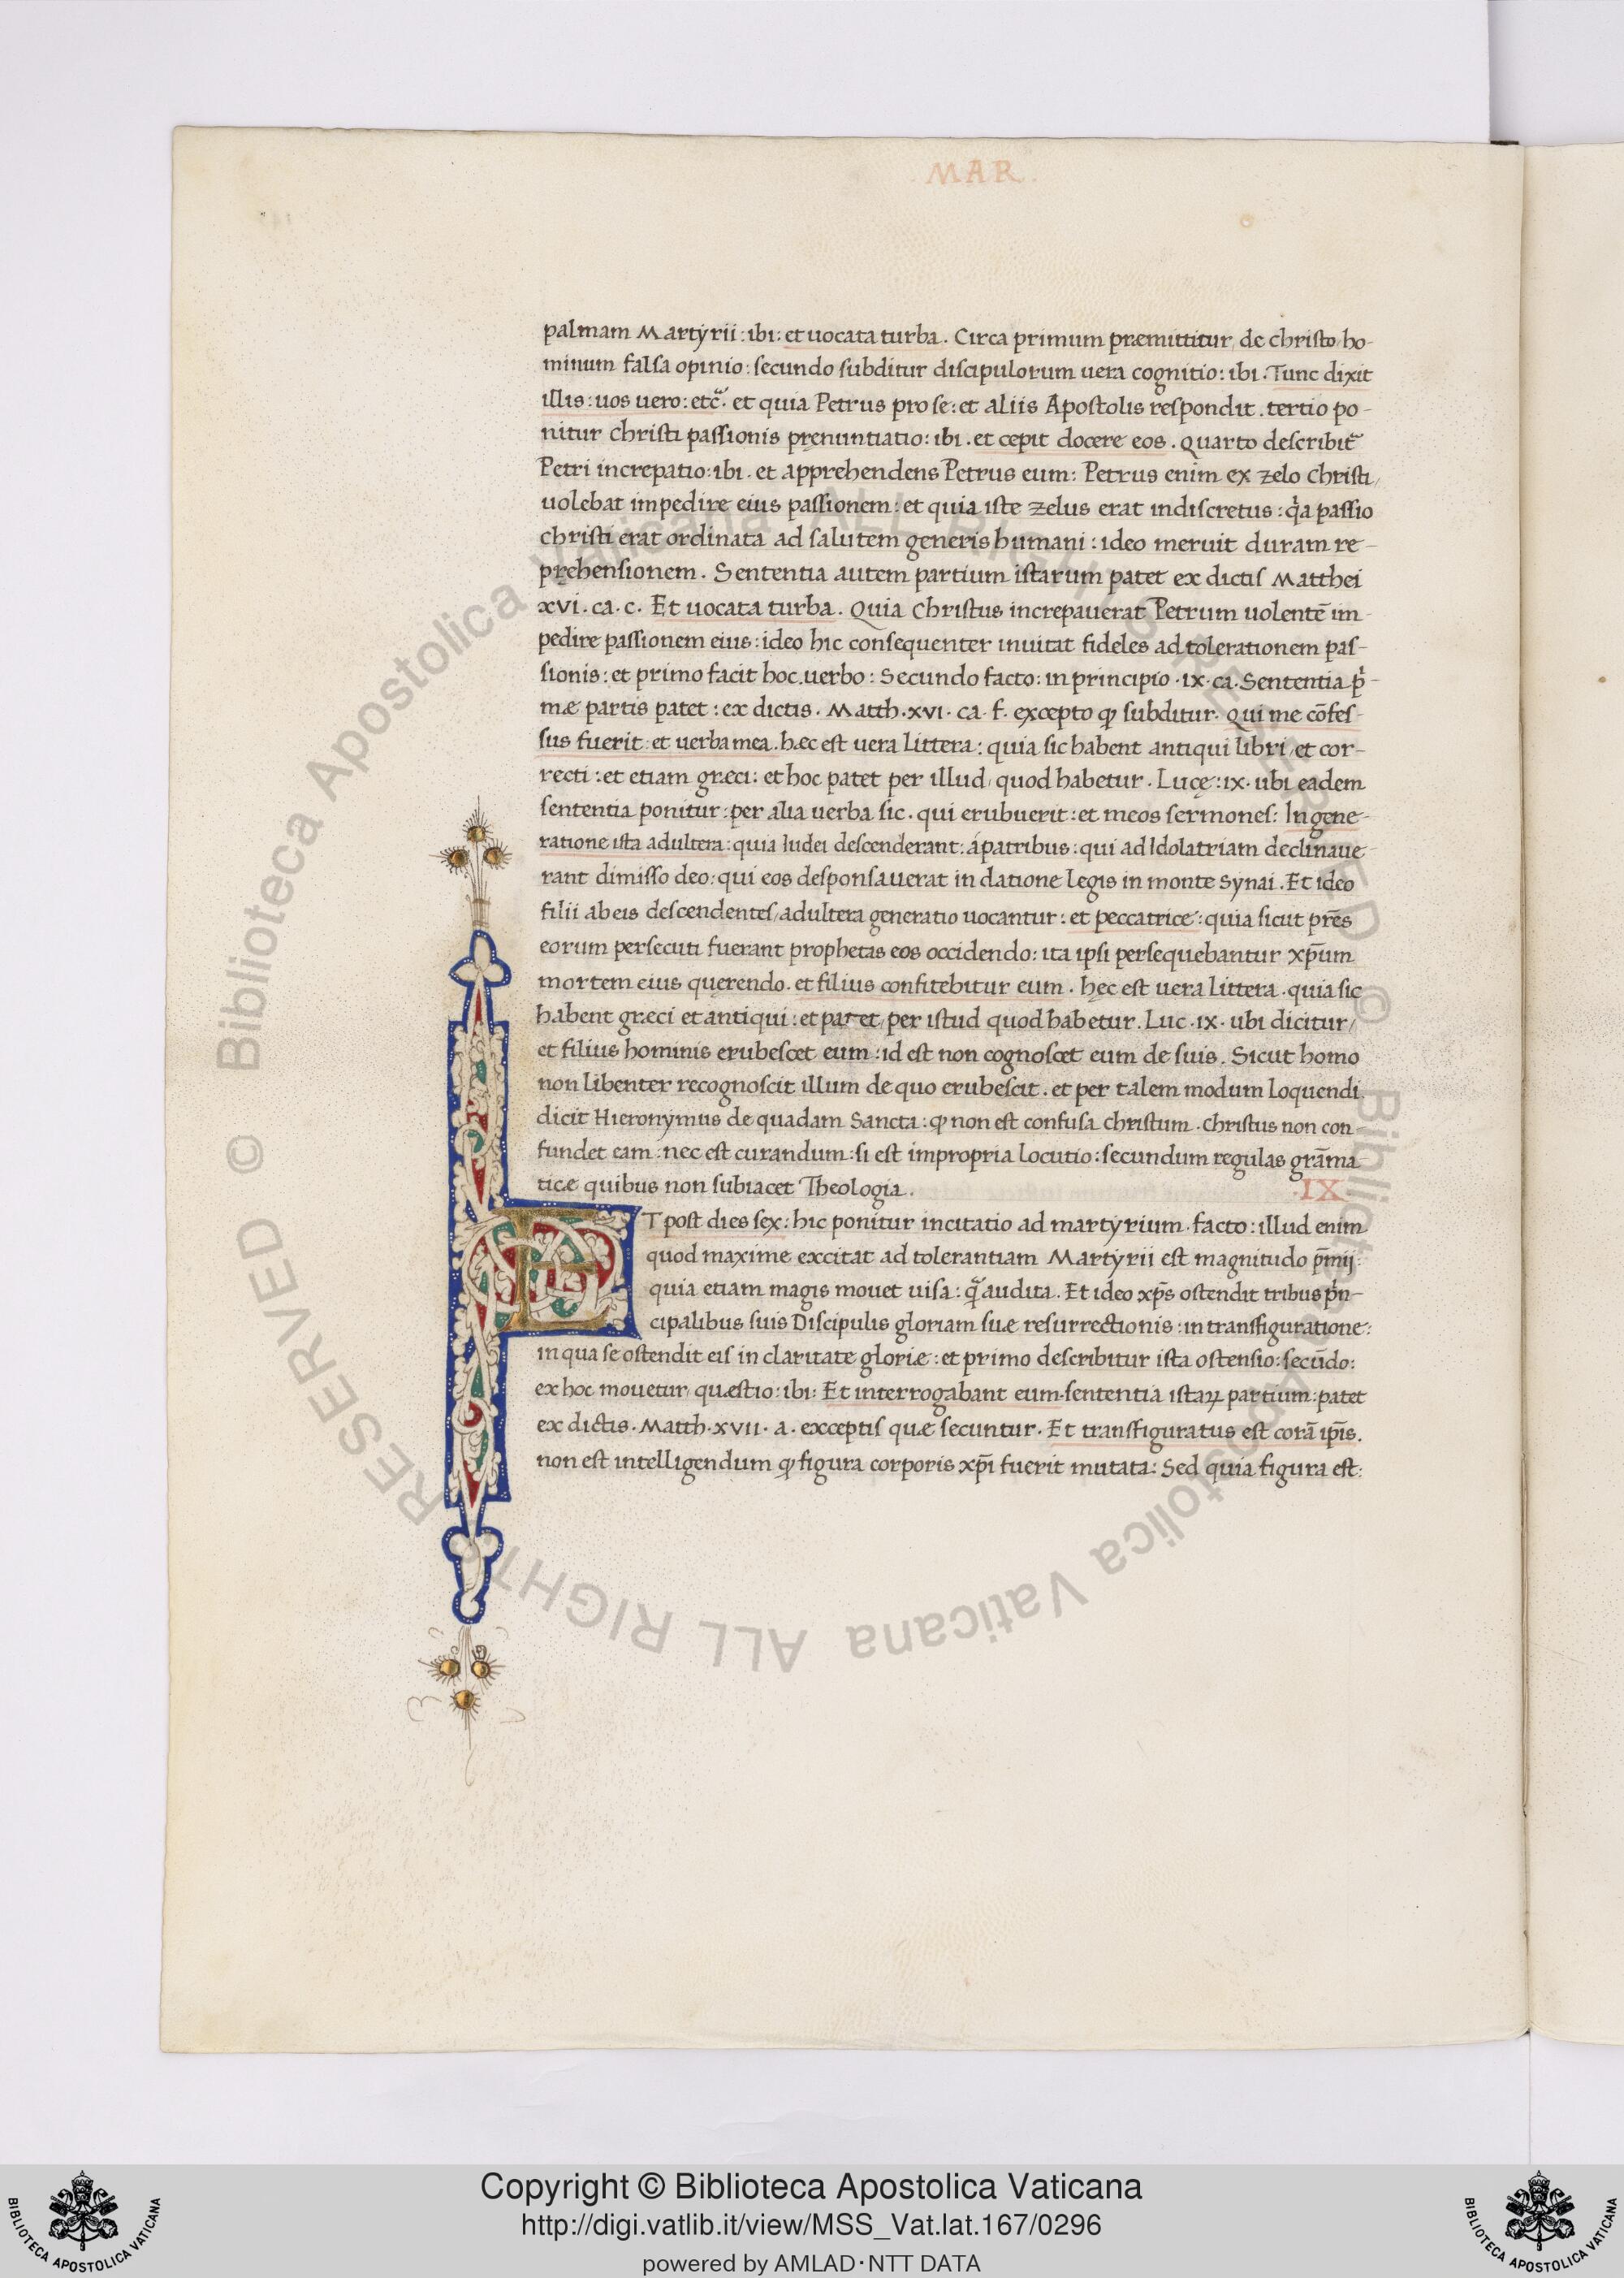 MAR.
palmam Martyrii: ibi: et uocata turba. Circa primum præmittitur, de christo, ho-
minum falsa opinio: secundo subditur discipulorum uera cognitio: ibi. Tunc dixit
illis: uos uero: etc̃. et quia Petrus pro se: et aliis Apostolis respondit. tertio po-
nitur christi passionis prenuntiatio: ibi. et cepit docere eos. Quarto describit᷑
Petri increpatio: ibi. et apprehendens Petrus eum: Petrus enim ex zelo christi,
uolebat impedire eius passionem: et quia iste zelus erat indiscretus: qͥa passio
christi erat ordinata ad salutem generis humani: ideo meruit duram re-
prehensionem. Sententia autem partium istarum patet ex dictis Matthei
xvi. ca. c. Et uocata turba. Quia christus increpauerat Petrum uolentē im-
pedire passionem eius: ideo hic consequenter inuitat fideles ad tolerationem pas-
sionis: et primo facit hoc uerbo: Secundo facto: in principio. ix. ca. Sententia pͥ-
mæ partis patet: ex dictis. Matth. xvi. ca. f. excepto ꝙ subditur. Qui me cōfes-
sus fuerit: et uerba mea. hæc est uera littera: quia sic habent antiqui libri, et cor-
recti: et etiam græci: et hoc patet per illud, quod habetur. Lucę: ix. ubi eadem
sententia ponitur: per alia uerba sic. qui erubuerit: et meos sermones: In gene-
ratione ista adultera: quia Iudei descenderant: á patribus: qui ad Idolatriam declinaue-
rant dimisso deo: qui eos desponsauerat in datione legis in monte Synai. Et ideo
filii ab eis descendentes, adultera generatio uocantur: et peccatrice: quia sicut pr̄es
eorum persecuti fuerant prophetas eos occidendo: ita ipsi persequebantur xp̄um
mortem eius quęrendo. et filius confitebitur eum. hęc est uera littera. quia sic
habent græci et antiqui: et patet, per istud quod habetur. Luc. ix. ubi dicitur,
et filius hominis erubescet eum: id est non cognoscet eum de suis. Sicut homo
non libenter recognoscit illum de quo erubescit. et per talem modum loquendi
dicit Hieronymus de quadam Sancta: ꝙ non est confusa christum. christus non con-
fundet eam: nec est curandum: si est impropria locutio: secundum regulas grāma-
ticæ quibus non subiacet Theologia.
.IX.
ET post dies sex: hic ponitur incitatio ad martyrium. facto: illud enim
quod maxime excitat ad tolerantiam Martyrii est magnitudo p̄mij:
quia etiam magis mouet uisa: q̃ audita. Et ideo xp̄s ostendit tribus pͥn-
cipalibus suis Discipulis gloriam suæ resurrectionis: in transfiguratione:
in qua se ostendit eis in claritate gloriæ: et primo describitur ista ostensio: secūdo:
ex hoc mouetur, quæstio: ibi: Et interrogabant eum. sententia istaꝝ partium: patet
ex dictis. Matth. xvii. a. exceptis quæ secuntur. Et transfiguratus est corā ip̄is.
non est intelligendum ꝙ figura corporis xp̄i fuerit mutata: Sed quia figura est:
© Biblioteca Apostolica Vaticana ALL RIGHTS RESERVED
© Biblioteca Apostolica Vaticana ALL RIGHTS RESERVED
Copyright © Biblioteca Apostolica Vaticana
http://digi.vatlib.it/view/MSS_Vat.lat.167/0296
powered by AMLAD·NTT DATA
BIBLIOTECA APOSTOLICA VATICANA
BIBLIOTECA APOSTOLICA VATICANA